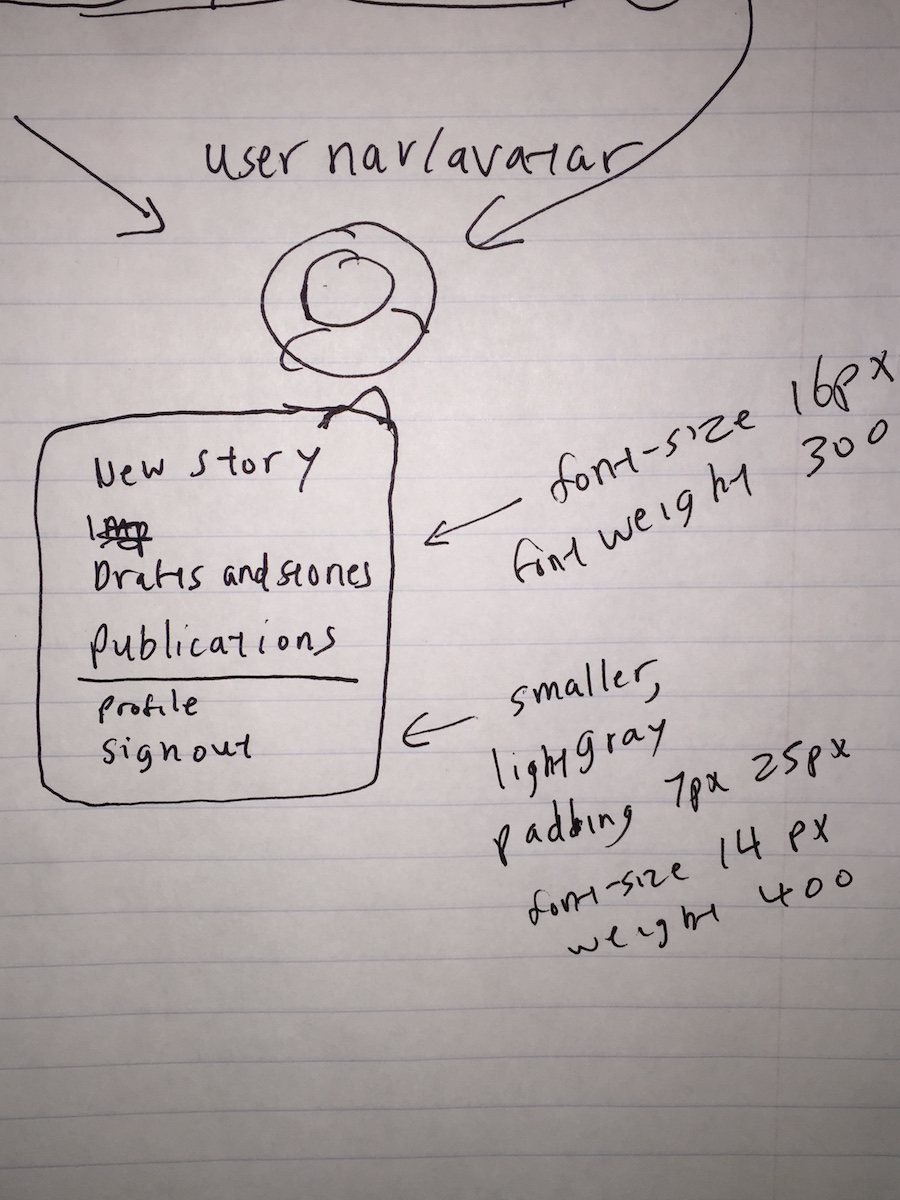 user nav/avatar
New story
Drafts and stories
Publications
profile
sign out
font-size 16px
font weight 300
smaller,
light gray
padding 7px 25px
font-size 14 px
weight 400